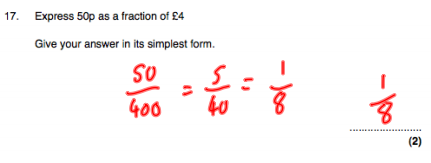 17. Express 50p as a fraction of £4
Give your answer in its simplest form.
50/400 = 5/40 = 1/8
1/8
(2)